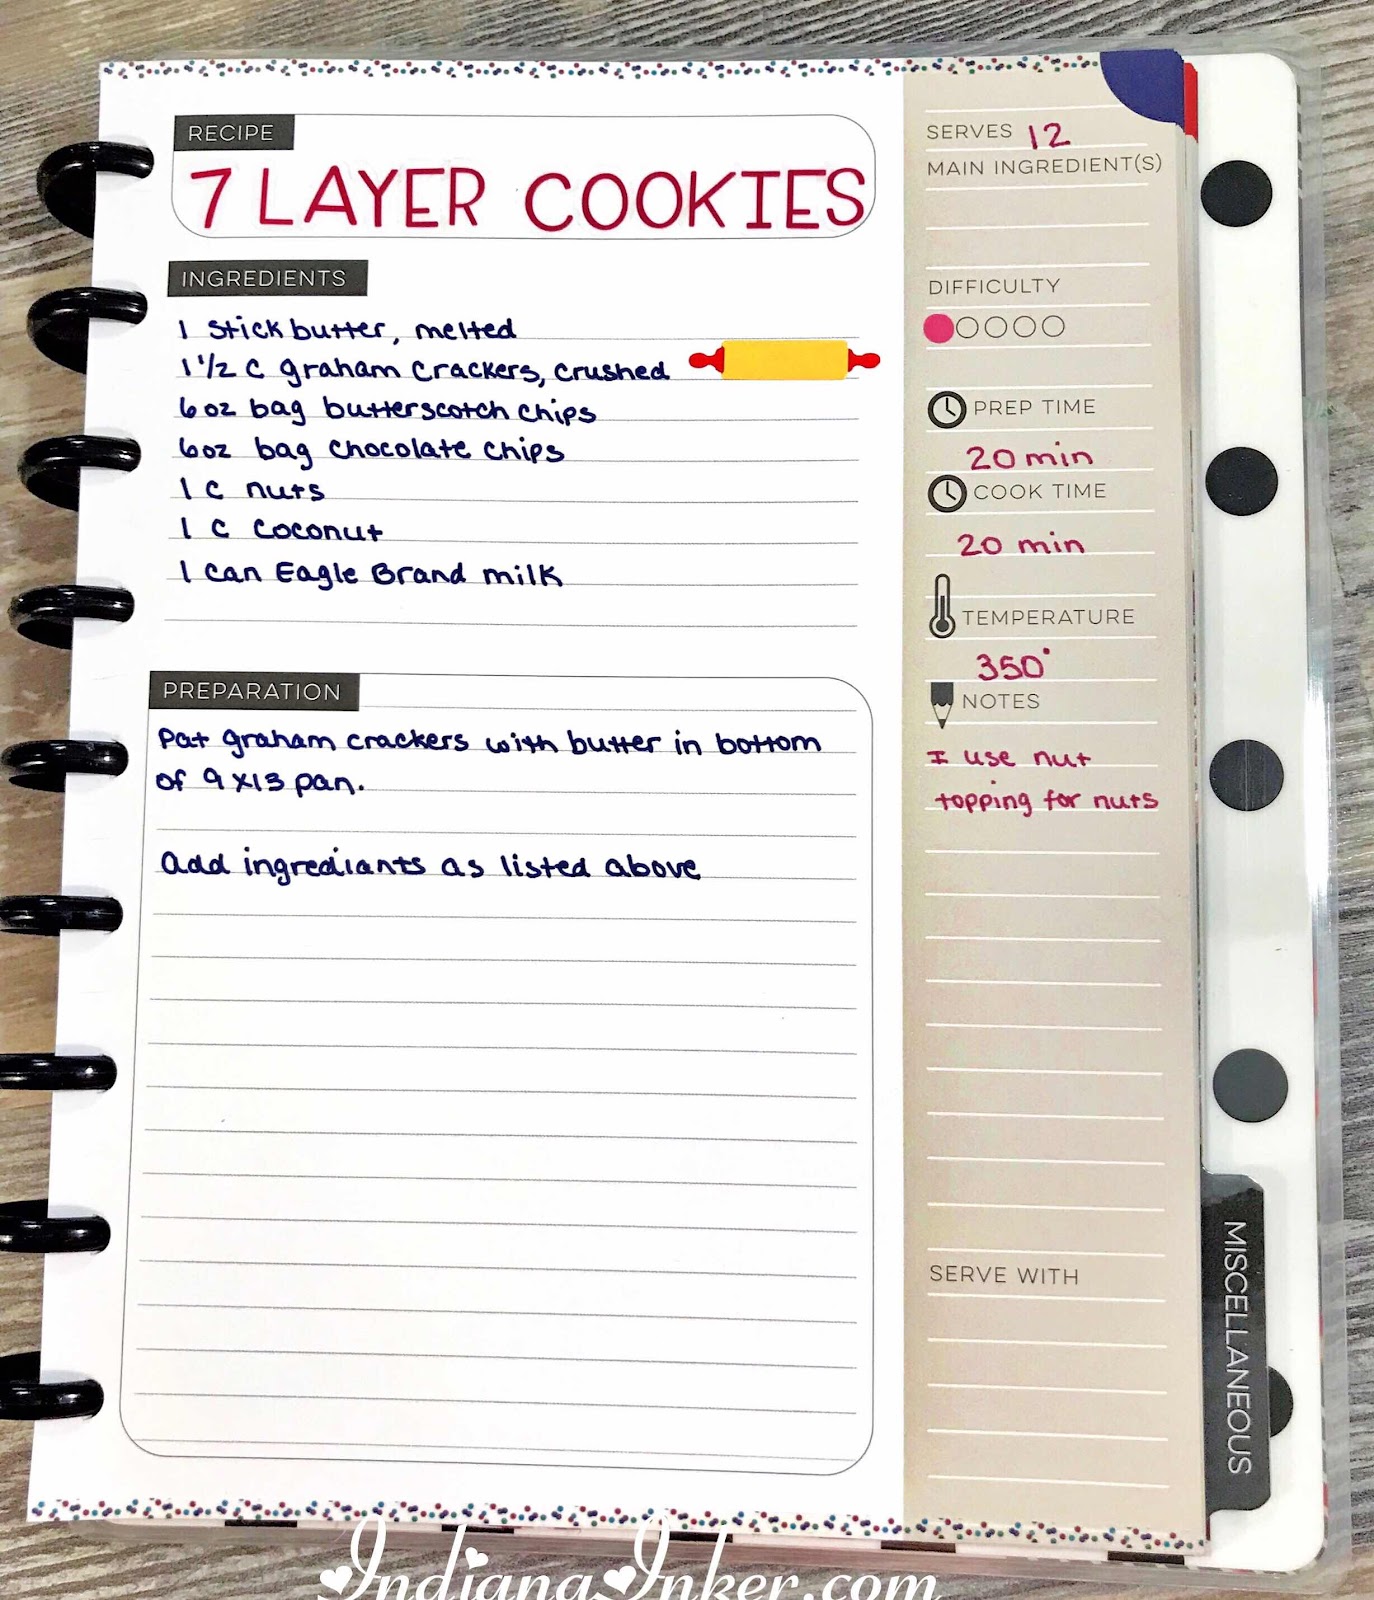 RECIPE
7 LAYER COOKIES
INGREDIENTS
1 stick butter, melted
1 1/2 c graham crackers, crushed
6 oz bag butterscotch chips
6oz bag chocolate chips
1 c nuts
1 c coconut
1 can Eagle Brand milk
PREPARATION
Pat graham crackers with butter in bottom
of 9x13 pan.
Add ingrediants as listed above
SERVES 12
MAIN INGREDIENT(S)
DIFFICULTY
PREP TIME
20 min
COOK TIME
20 min
TEMPERATURE
350°
NOTES
I use nut
topping for nuts
SERVE WITH
MISCELLANEOUS
IndianaInker.com